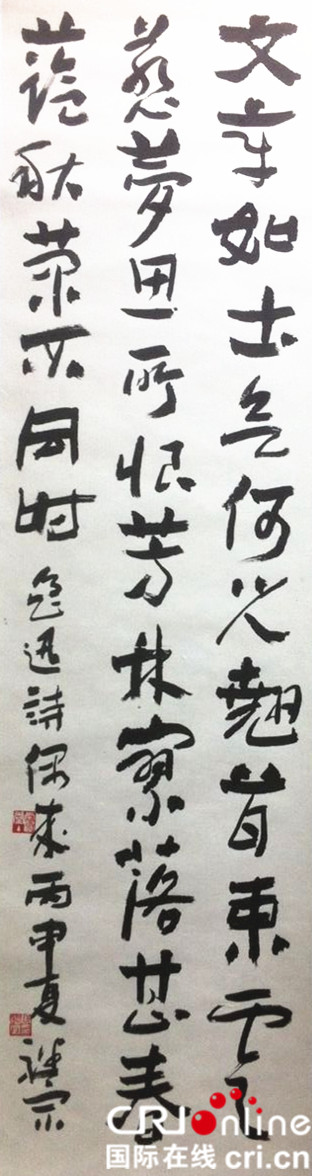 文章如土欲何之翹首東雲
惹夢思所恨芳林寥落甚春
蘭秋菊不同时 魯迅詩偶成丙申夏
CRIonline
国际在线 cri.cn